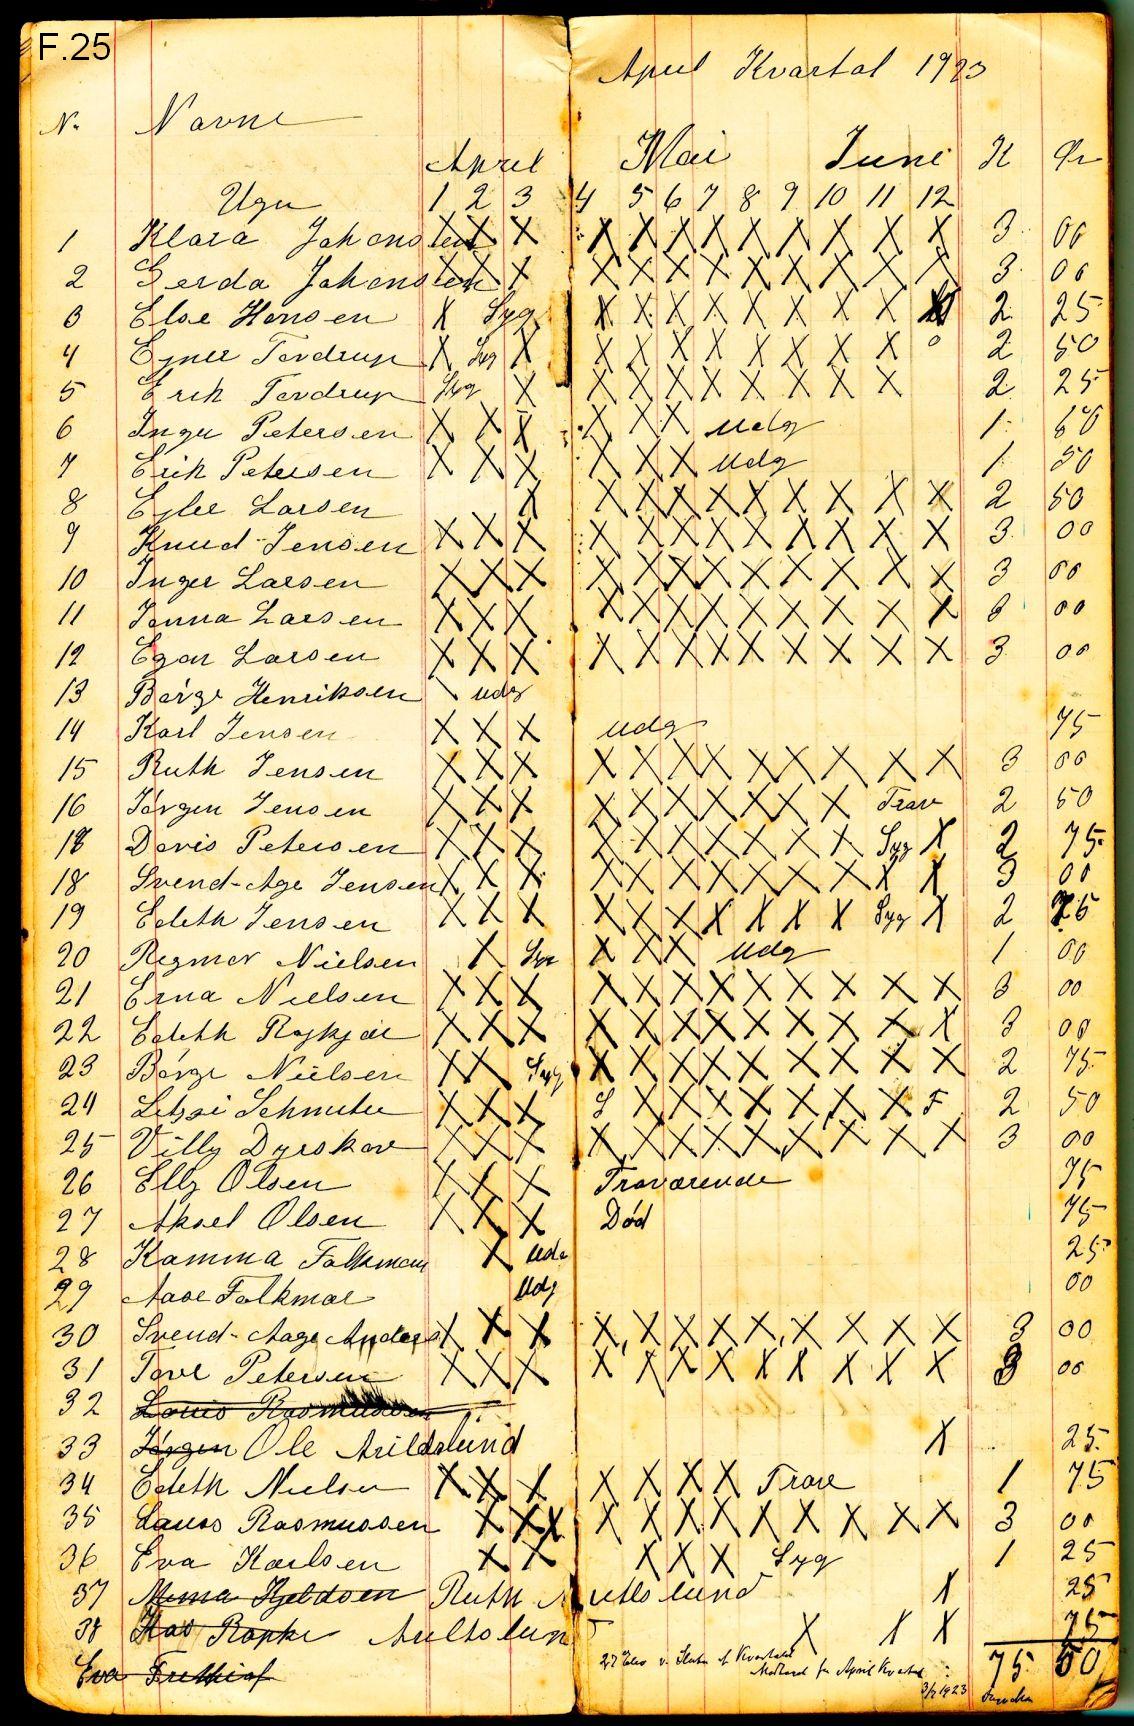 F.25
April Kvartal 1923
Nr. Navne
April Mai Juni K Ør
Uge 1 2 3 4 5 6 7 8 9 10 11 12
1 Klara Johansen X X X X X X X X X X X X 3 00
2 Gerda Johansen X X X X X X X X X X X X 3 00
3 Else Hansen X Syg X X X X X X X X 2 25
4 Ejner Tendrup X Syg X X X X X X X X X 0 2 50
5 Erik Tendrup Syg X X X X X X X X X 2 25
6 Inger Petersen X X X X X X udg 1 50
7 Erik Petersen X X X X X X udg 1 50
8 Larsen X X X X X X X X X X 2 50
9 Knud Jensen X X X X X X X X X X X X 3 00
10 Inger Larsen X X X X X X X X X X X X 3 00
11 Jonna Larsen X X X X X X X X X X X X 3 00
12 Egon Larsen X X X X X X X X X X X X 3 00
13 Børge Henriksen \ udg
14 Karl Jensen X X X udg 75
15 Ruth Jensen X X X X X X X X X X X X 3 00
16 Jørgen Jensen X X X X X X X X X X Frav 2 50
18 Doris Petersen X X X X X X X X X X Syg X 2 75
18 Svend-Age Jensen X X X X X X X X X X X X 3 00
19 Edith Jensen X X X X X X X X X X Syg X 2 75
20 Regmor Nielsen X Syg X X X udg 1 00
21 Erna Nielsen X X X X X X X X X X X X 3 00
22 Edith Røjkjær X X X X X X X X X X X X 3 00
23 Børge Nielsen X X Syg X X X X X X X X X 2 75
24 X X X S X X X X X X X F 2 50
25 Villy Dyrskov X X X X X X X X X X X X 3 00
26 Elly Olsen X X X Fraværende 75
27 Aksel Olsen X X X Død 75
28 Kamma Falkmar X udg 25
29 Aase Falkmar udg 00
30 Svend-Aage Anders X X X X X X X X X X X X 3 00
31 Tove Petersen X X X X X X X X X X X X 3 00
32 Louis Rasmussen
33 Jørgen Ole Arildslund X 25
34 Edith Nielsen X X X X X X X Frav 1 75
35 Louis Rasmussen X X X X X X X X X X X X 3 00
36 Eva Karlsen X X X X X Syg 1 25
37 Minna Kjeldsen Ruth X 25
38 X X X 75
Eva Frithiof
27 Elev v. Slutn af Kvartalet
Modtaget for April Kvartal
3/7 1923
75 50